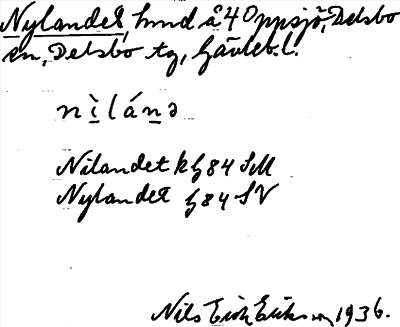 Nylandet, hmd å 4 Oppsjö, Delsbo
sn, Delsbo tg, Gävleb.l.
nìlánə
Nilandet kg 84 SM
Nylandet g 84 SV
Nils Erik Erikson 1936.